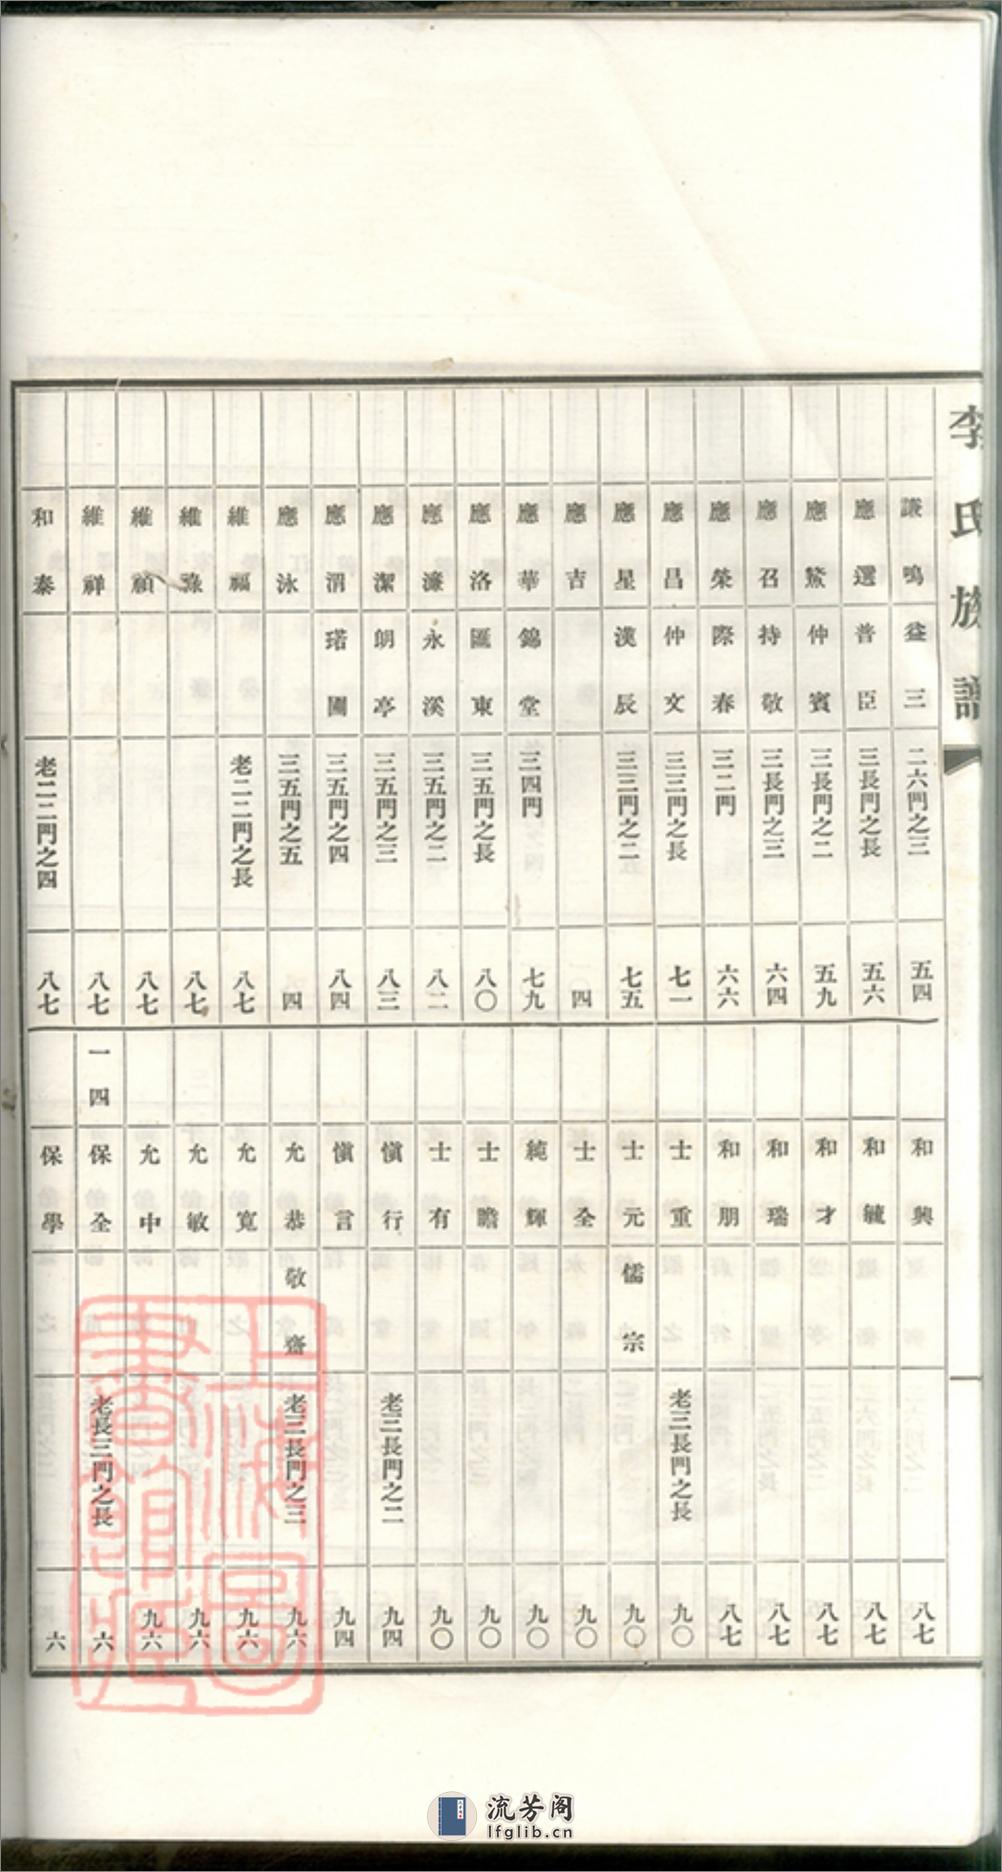 李氏族譜
謙鳴 益三 二六門之三 五四
應選 普臣 三長門之長 五六
應鰲 仲賓 三長門之二 五九
應召 持敬 三長門之三 六四
應榮 際春 三二門 六六
應昌 仲文 三三門之長 七一
應星 漢辰 三三門之二 七五
應吉 四
應華 錦堂 三四門 七九
應洛 匯東 三五門之長 八〇
應濂 永溪 三五門之二 八二
應潔 朗亭 三五門之三 八三
應渭 珺園 三五門之四 八四
應泳 三五門之五 四
維福 老二二門之長 八七
維祿 八七
維禎 八七
維祥 八七
和泰 老二二門之四 八七
和興 八七
和毓 八七
和才 八七
和瑞 八七
和朋 八七
士重 老三長門之長 九〇
士元 儒宗 九〇
士全 九〇
純輝 九〇
士贍 九〇
士有 九〇
慎行 老三長門之二 九四
慎言 九四
允恭 敬齋 老三長門之三 九六
允寬 九六
允敏 九六
允中 九六
一四 保全 老長三門之長 六
保學 六
上海圖書館藏
流芳阁
lfglib.cn